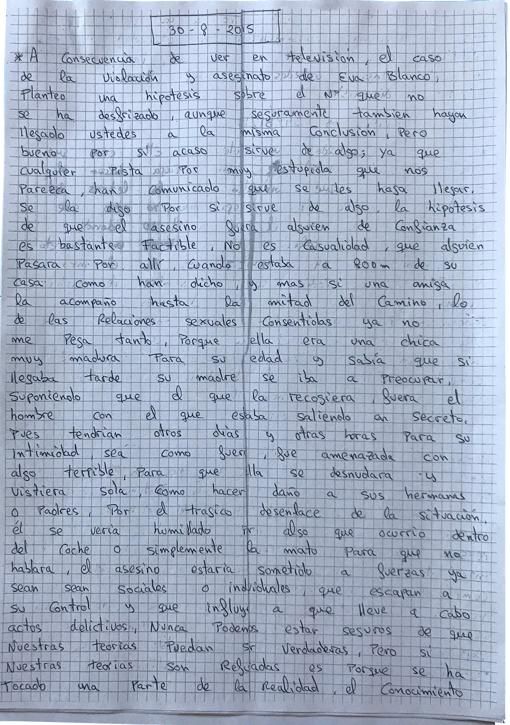 30-8-2015
* A Consecuencia de ver en televisión, el caso
de la violación y asesinato de Eva Blanco,
Planteo una hipotesis sobre el Nº que no
se ha descrizado, aunque seguramente tambien hayan
llegado ustedes a la misma Conclusión, Pero
bueno Por si acaso sirve de algo; ya que
cualquier Pista Por muy estupida que nos
Parezca, han comunicado que se les haga llegar.
Se la digo Por si sirve de algo la hipotesis
de que el asesino fuera alguien de Confianza
es bastante Factible, No es Casualidad, que alguien
Pasara Por allí, Cuando estaba a 800m de su
Casa como han dicho, y mas si una amiga
la acompaño hasta la mitad del Camino, lo
de las Relaciones sexuales Consentidas ya no
me Pega tanto, Porque ella era una chica
muy madura Para su edad y sabía que si
llegaba tarde su madre se iba a Preocupar.
Suponiendo que el que la recogiera, fuera el
hombre con el que estaba saliendo en Secreto.
Pues tendrian otros dias y otras horas Para su
Intimidad, sea como fuere, fue amenazada con
algo terrible, Para que ella se desnudara y
vistiera sola, Como hacer daño a sus hermanas
o Padres, Por el tragico desenlace de la situación.
él se veria humillado Por algo que ocurrio dentro
del Coche o simplemente la mato Para que no
hablara, el asesino estaria sometido a fuerzas ya
sean sean sociales o individuales, que escapan a
su Control y que influye a que lleve a cabo
actos delictivos, Nunca Podemos estar seguros de que
Nuestras teorias Puedan ser verdaderas, Pero si
Nuestras teorias son Refutadas es Porque se ha
Tocado una Parte de la Realidad, el Conocimiento